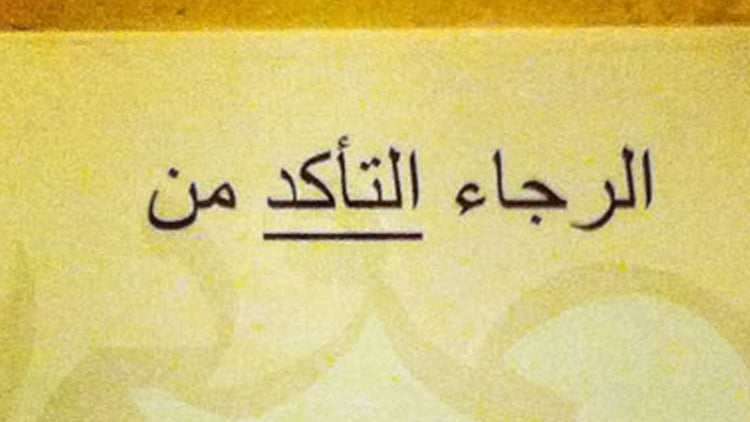 الرجاء التأكد من